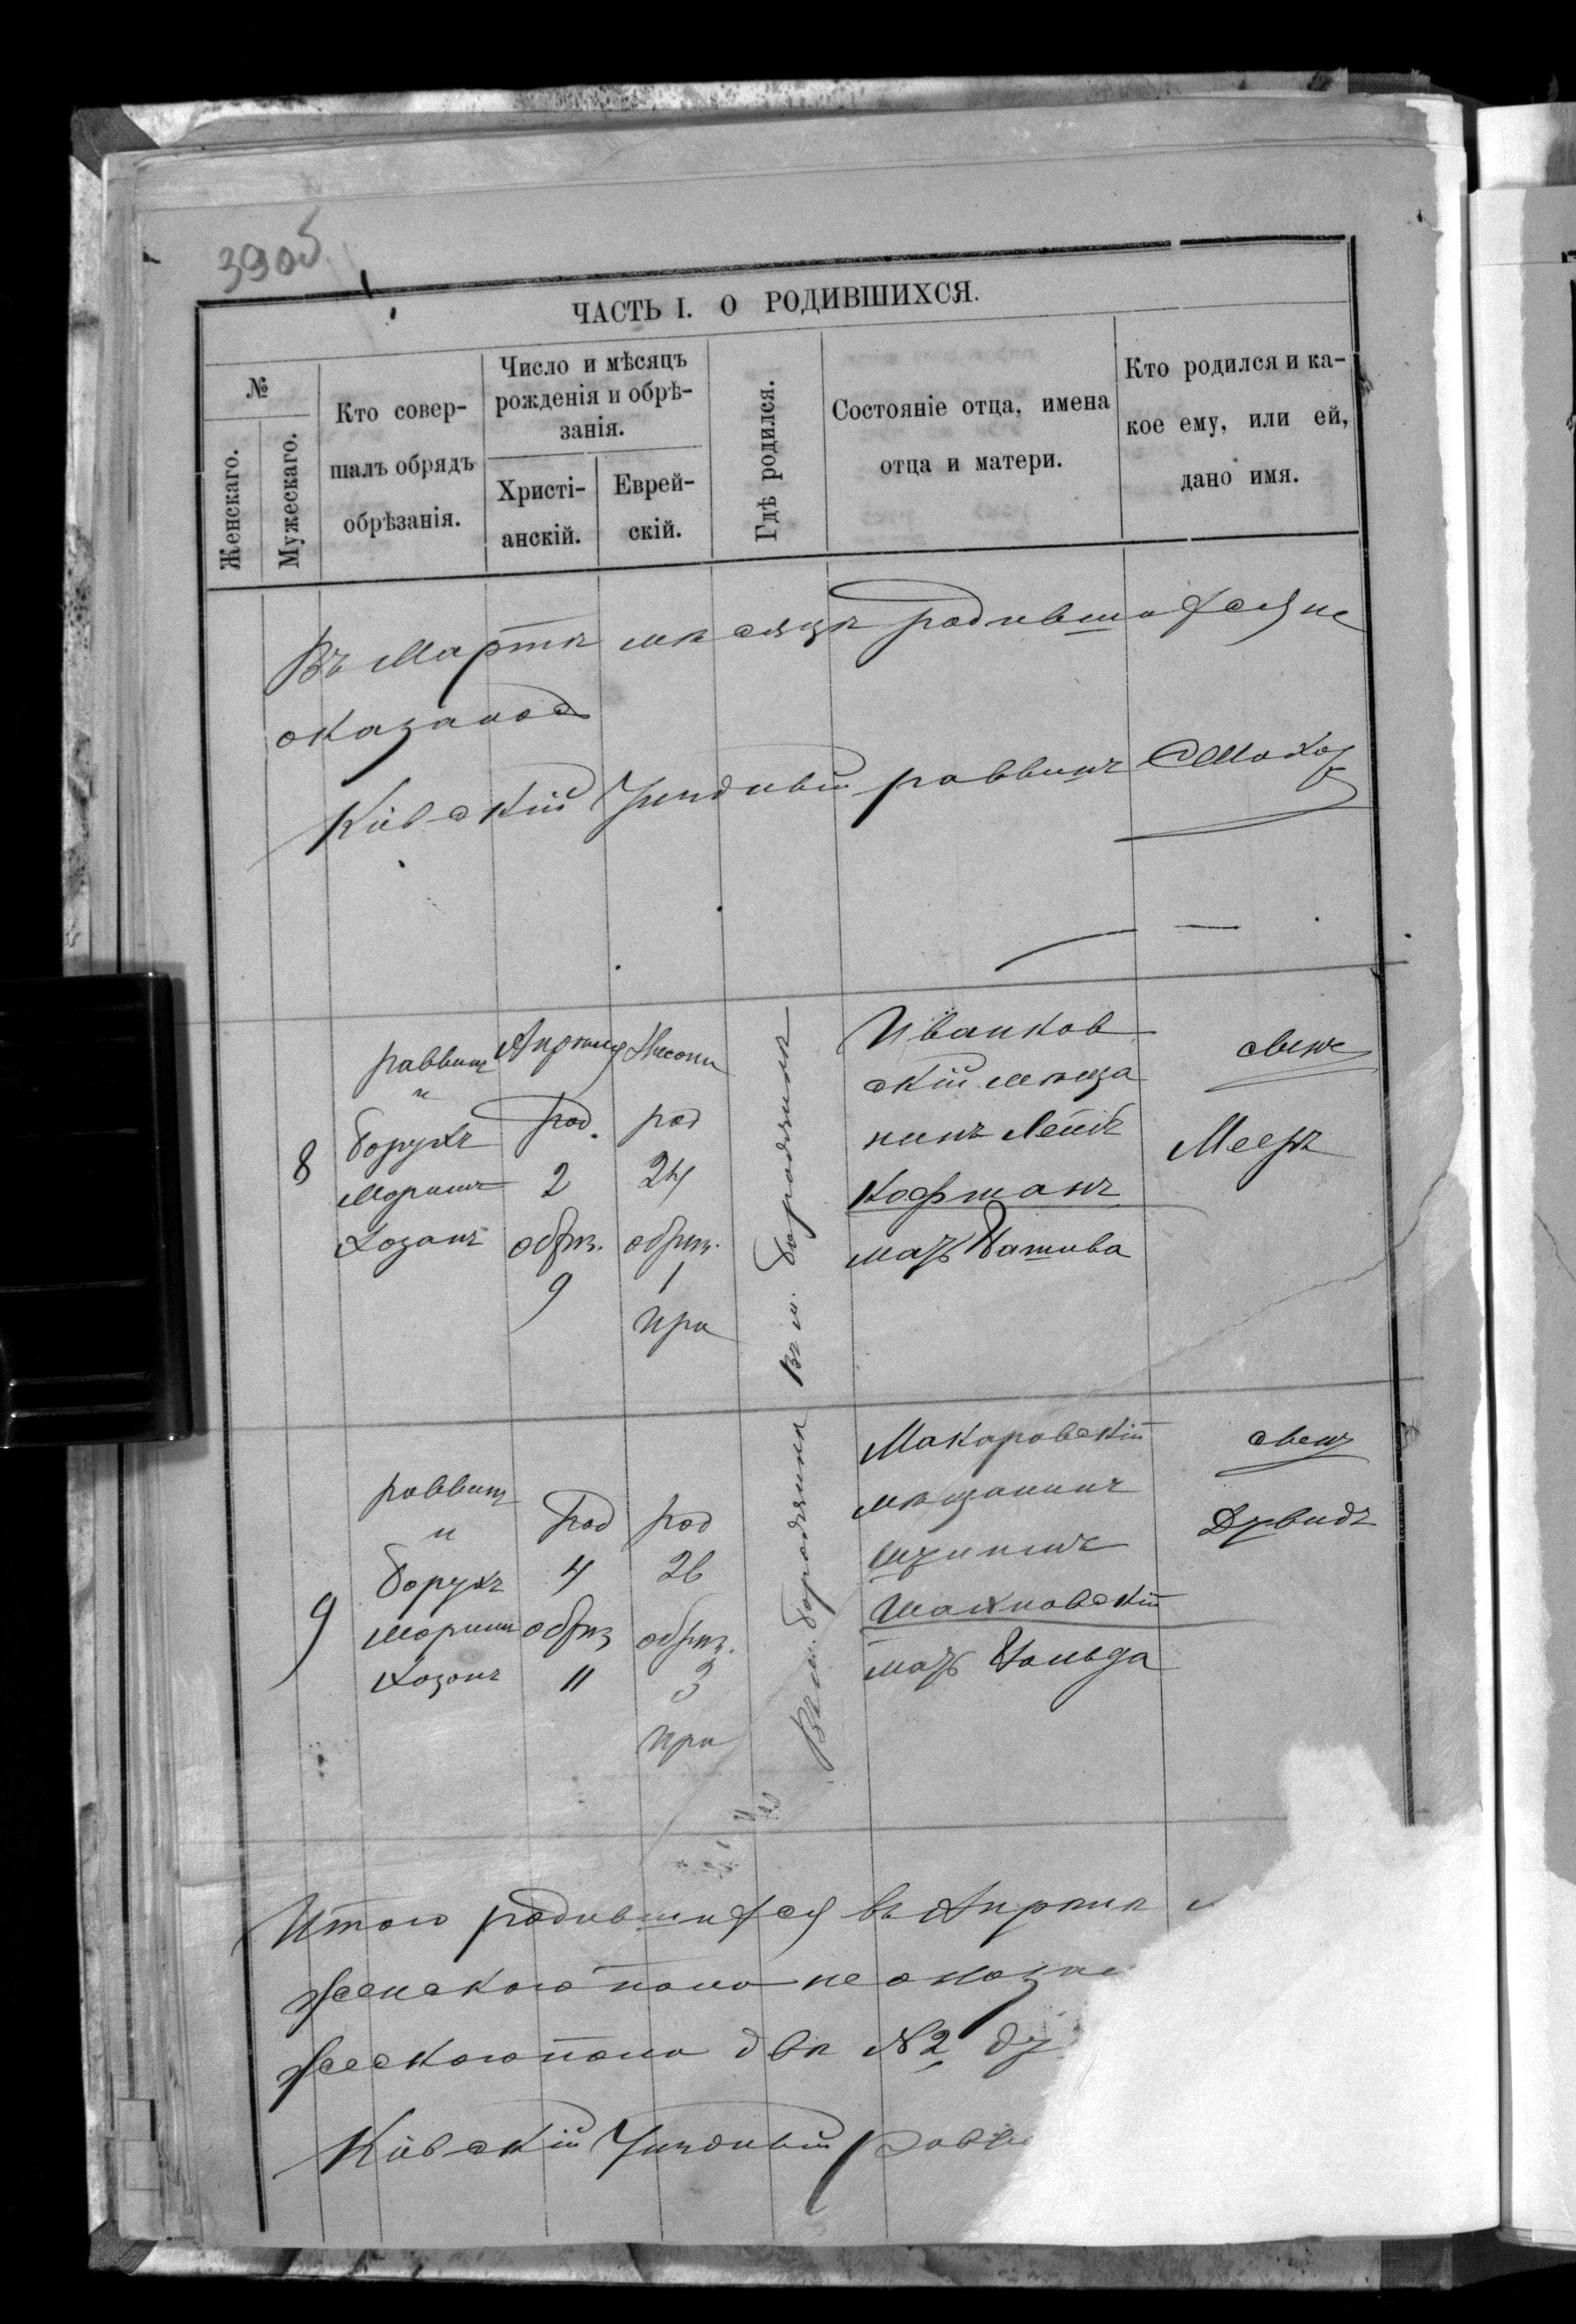 390б
ЧАСТЬ I. О РОДИВШИХСЯ.
№
Женскаго.
Мужескаго.
Кто совер-
шалъ обрядъ
обрѣзанія.
Число и мѣсяцъ
рожденія и обрѣ-
занія.
Христі-
анскій.
Еврей-
скій.
Гдѣ родился.
Состояніе отца, имена
отца и матери.
Кто родился и ка-
кое ему, или ей,
дано имя.
Въ Мартѣ мѣсяцѣ родившихся не
оказалось
Кіевскій Уѣздный раввинъ
8
раввинъ
и
Борухъ
Моришъ
Хозанъ
Апрѣля
род.
2
обрѣз.
9
Нисонъ
род
24
обрѣз.
1
Ира
Въ м. Бородянкѣ
Иванков
скій мѣща
нинъ Лейбъ
Кофманъ
мать Батшва
сынъ
Мееръ
9
раввинъ
и
Борухъ
Моришъ
Хозонъ
род
4
обрѣз
11
род
26
обрѣз.
3
Ира
Въ м. Бородянкѣ
Макаровскій
мѣщанинъ
Шахновскій
мать Гольда
сынъ
Дувидъ
Итого родившихся въ Апрѣлѣ
женскаго пола не оказа
жескаго пола двѣ № 2 ду
Кіевскій Уѣздный равви